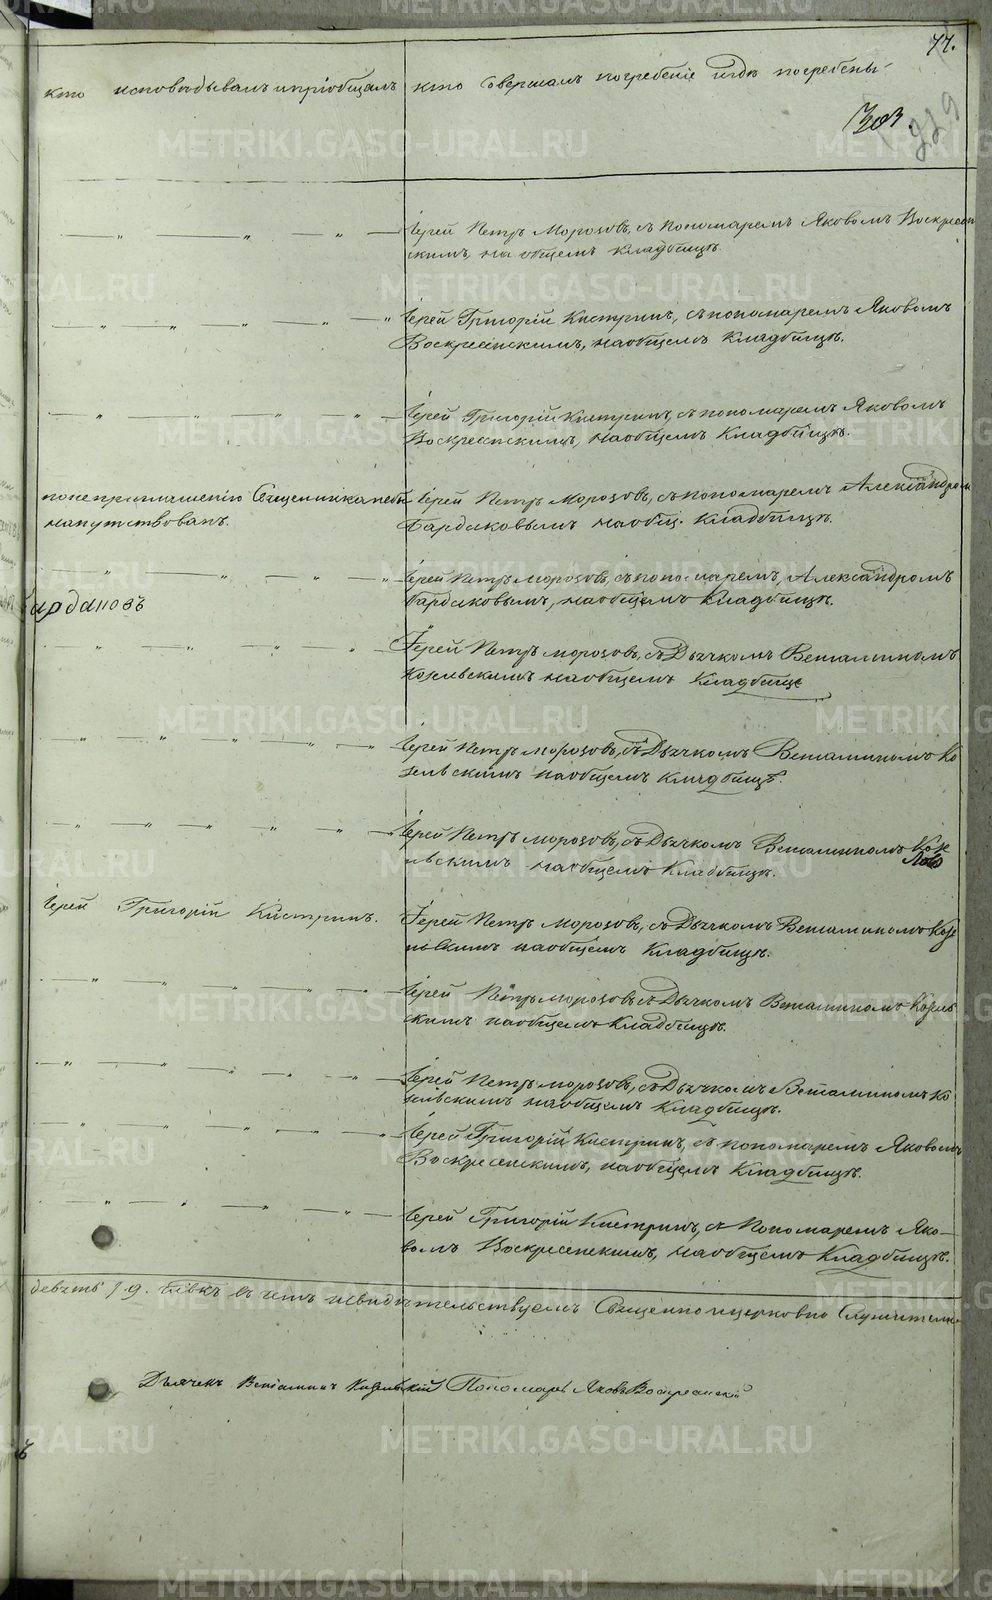 77.
кто исповѣдывалъ и пріобщалъ
кто совершалъ погребеніе и гдѣ погребены
303.
229
Іерей Петръ Морозовъ, съ Пономаремъ Яковомъ Воскресен
скимъ, на общемъ кладбищѣ.
Іерей Григорій Кистринъ, съ пономаремъ Яковомъ
Воскресенскимъ, на общемъ Кладбищѣ.
Іерей Григорій Кистринъ, съ пономаремъ Яковомъ
Воскресенскимъ, на общемъ Кладбищѣ.
по неприглашенію Священника небы
напутствованъ.
Іерей Петръ Морозовъ, съ пономаремъ Александромъ
Бардаковымъ на общ. Кладбищѣ.
Іерей Петръ Морозовъ, съ пономаремъ, Александромъ
Бардаковымъ, на общемъ Кладбищѣ.
Іерей Петръ Морозовъ, съ Дьячкомъ Веніаминомъ
Козельскимъ на общемъ Кладбище
Іерей Петръ Морозовъ, съ Дьячкомъ Веніаминомъ Ко
зельскимъ на общемъ Кладбищѣ.
Іерей Петръ Морозовъ, съ Дьячкомъ Веніаминомъ Козе
льскимъ на общемъ Кладбищѣ.
Іерей Григорій Кистринъ.
Іерей Петръ Морозовъ, съ Дьячкомъ Веніаминомъ Козе
льскимъ на общемъ Кладбищѣ.
Іерей Петръ Морозовъ съ Дьячкомъ Веніаминомъ Козель
скимъ на общемъ Кладбищѣ.
Іерей Петръ Морозовъ, съ Дьячкомъ Веніаминомъ Ко
зельскимъ на общемъ Кладбищѣ.
Іерей Григорій Кистринъ, съ пономаремъ Яковомъ
Воскресенскимъ, на общемъ Кладбищѣ.
Іерей Григорій Кистринъ, съ Пономаремъ Яко-
вомъ Воскресенскимъ, на общемъ Кладбищѣ.
девять /:9. въ чемъ и свидѣтельствуемъ Священно и церковно Служители
Дьячекъ Веніаминъ Козельскій Пономарь Яковъ Воскресенскій
METRIKI.GASO-URAL.RU